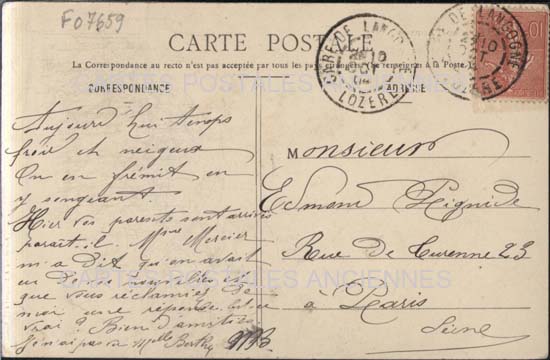 F07659
CARTE POSTALE
La Correspondance au recto n'est pas acceptée par tous les pays étrangers. (Se renseigner à la Poste.)
CORRESPONDANCE
ADRESSE
GARE DE LANGOGNE
LOZERE
GARE DE LANGOGNE
LOZERE
10
CARTES POSTALES ANCIENNES
Aujourd'hui temps
froid et neigeux
On en frémit en
y songeant.
Hier vos parents sont arrivés
paraît-il. Mme Mercier
m'a dit qu'on avait
que vous réclamiez de
moi une réponse. Est-ce
vrai? Bien d'amitiés
Je n'ai pas vu Melle Berthe
MB
Monsieur
Edmond
Rue de Turenne 23
à Paris
Seine
CARTES POSTALES ANCIENNES